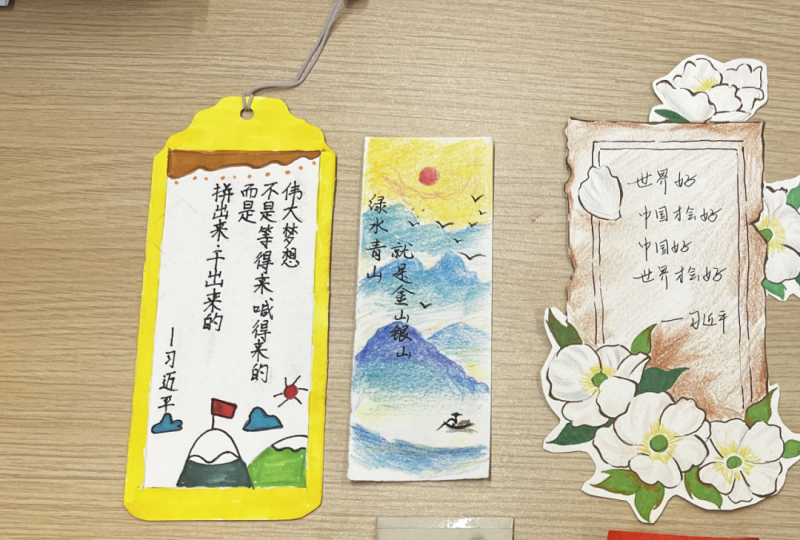 伟大梦想
不是等得来 喊得来的
而是
拼出来·干出来的
—习近平
绿水青山
就是金山银山
世界好
中国才会好
中国好
世界才会好
—习近平